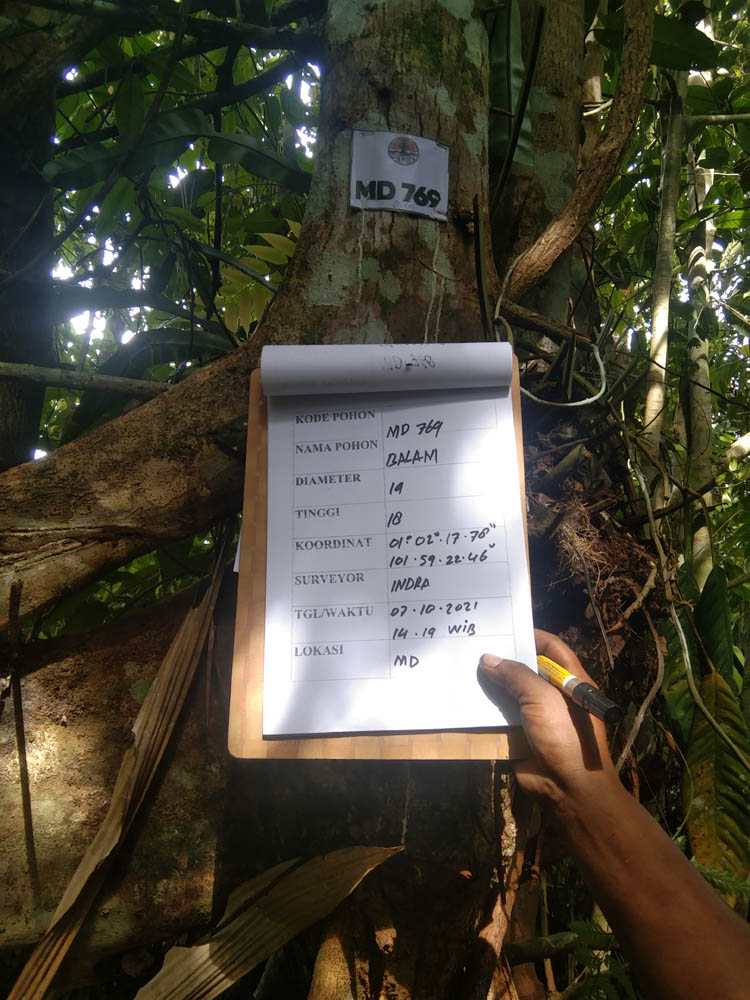 MD 769
KODE POHON MD 769
NAMA POHON BALAM
DIAMETER 19
TINGGI 18
KOORDINAT 01° 02" . 17 . 78"
101 . 59 . 22 . 46"
SURVEYOR INDRA
TGL/WAKTU 07 . 10 . 2021
14 . 19 WIB
LOKASI MD